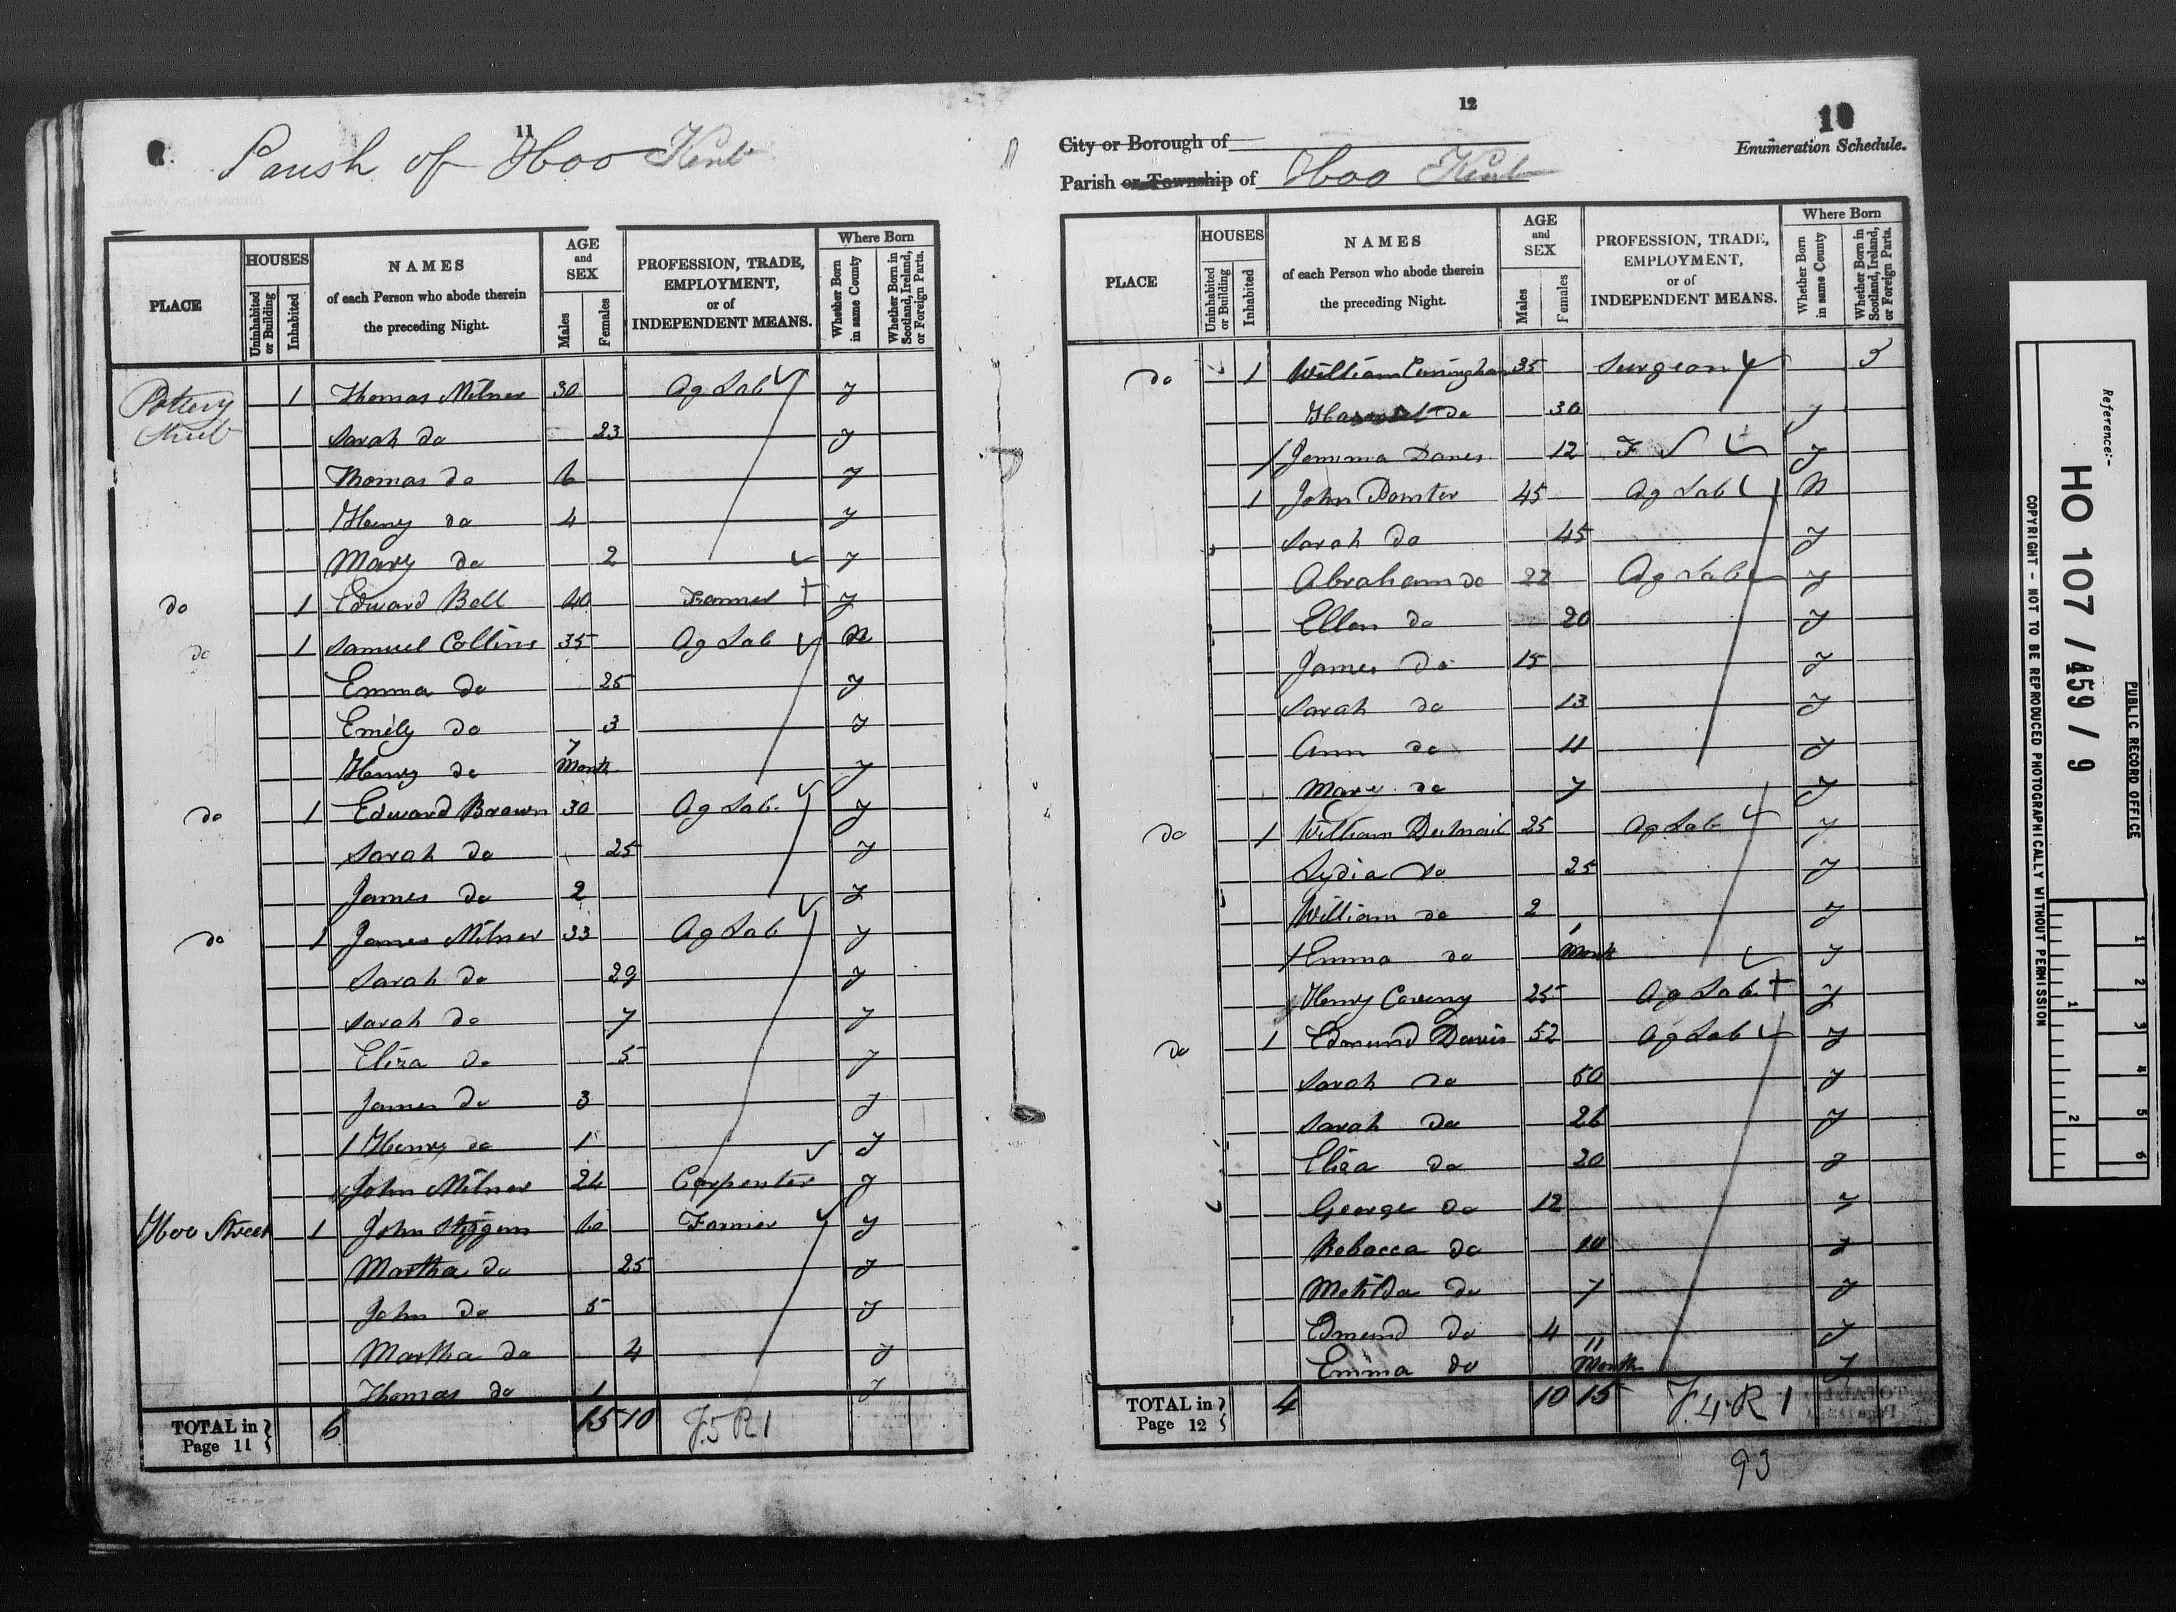 11
Parish of Hoo Kent
PLACE
HOUSES
Uninhabited or Building
Inhabited
NAMES
of each Person who abode therein
the preceding Night.
AGE
and
SEX
Males
Females
PROFESSION, TRADE,
EMPLOYMENT,
or of
INDEPENDENT MEANS.
Where Born
Whether Born in same County
Whether Born in Scotland, Ireland, or Foreign Parts.
Pottery Street 1 Thomas Milner 30 Ag Lab y
Sarah do 23 y
Thomas do 6 y
Henry do 4 y
Mary do 2 y
do 1 Edward Bell 40 Farmer y
do 1 Samuel Collins 35 Ag Lab N
Emma do 25 y
Emily do 3 y
Henry do 7 Month y
do 1 Edward Brown 30 Ag Lab y
Sarah do 25 y
James do 2 y
do 1 James Milner 33 Ag Lab y
Sarah do 29 y
Sarah do 7 y
Eliza do 5 y
James do 3 y
Henry do 1 y
John Milner 24 Carpenter y
Hoo Street 1 John 60 Farmer y
Martha do 25 y
John do 5 y
Martha do 4 y
Thomas do 1 y
TOTAL in Page 11 6 15 10 F.5 R 1
12
10
City or Borough of
Enumeration Schedule.
Parish or Township of Hoo Kent
PLACE
HOUSES
Uninhabited or Building
Inhabited
NAMES
of each Person who abode therein
the preceding Night.
AGE
and
SEX
Males
Females
PROFESSION, TRADE,
EMPLOYMENT,
or of
INDEPENDENT MEANS.
Where Born
Whether Born in same County
Whether Born in Scotland, Ireland, or Foreign Parts.
do 1 William 35 Surgeon
do 30 y
Jemima 12 F S y
1 John 45 Ag Lab N
Sarah do 45 y
Abraham do 22 Ag Lab y
Ellen do 20 y
James do 15 y
Sarah do 13 y
Ann do 11 y
Mary do 7 y
do 1 William 25 Ag Lab y
Lydia do 25 y
William do 2 y
Emma do 1 Month y
Henry 25 Ag Lab y
do 1 Edmund Davis 52 Ag Lab y
Sarah do 50 y
Sarah do 26 y
Eliza do 20 y
George do 12 y
Rebacca do 10 y
Matilda do 7 y
Edmund do 4 y
Emma do 11 Month y
TOTAL in Page 12 4 10 15 F.4 R 1
93
Reference:-
HO 107 / 459 / 9
PUBLIC RECORD OFFICE
COPYRIGHT - NOT TO BE REPRODUCED PHOTOGRAPHICALLY WITHOUT PERMISSION
1
2
1
2
3
4
5
6